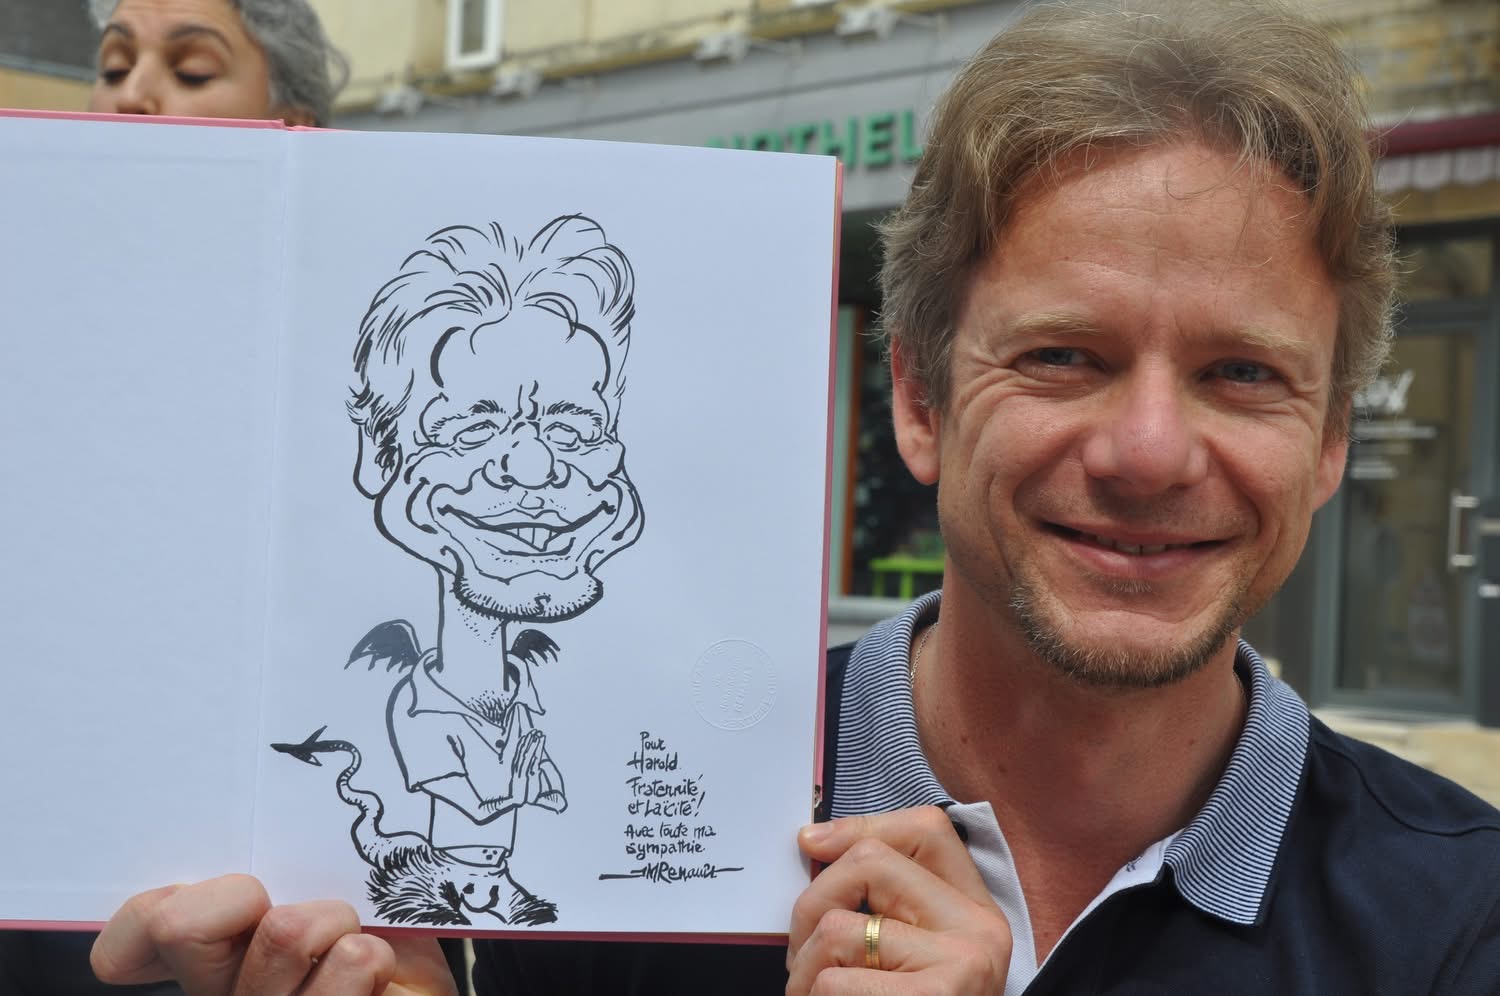 NOTHEL
Pour
Harold.
Fraternité
et La "Cité"!
Avec toute ma
sympathie.
MRenault